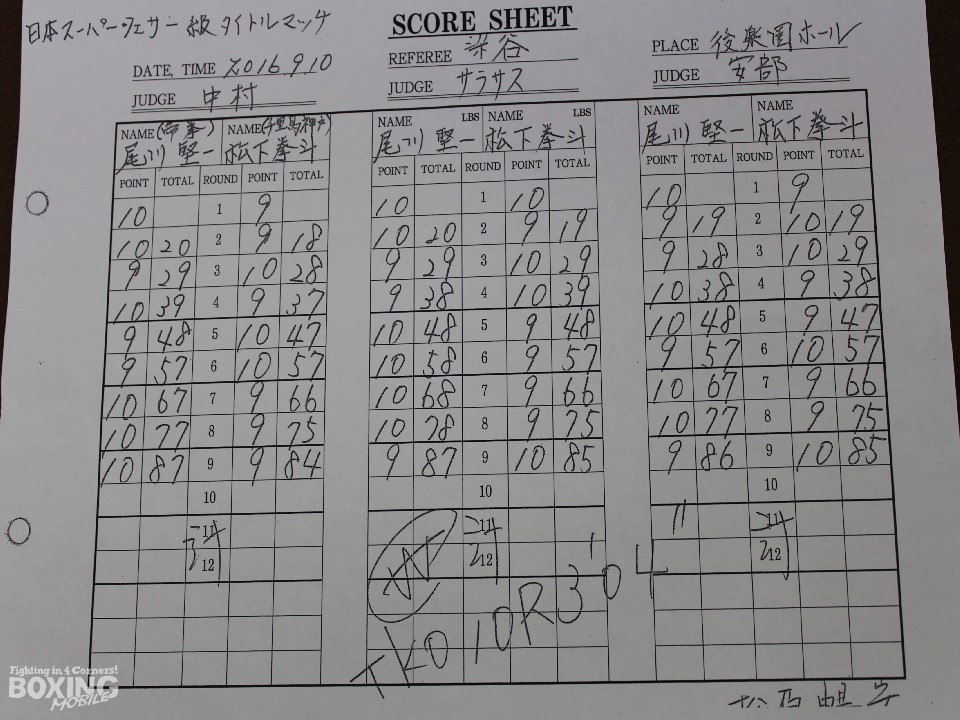 SCORE SHEET
日本スーパーフェザー級タイトルマッチ
REFEREE 染谷
PLACE 後楽園ホール
DATE, TIME 2016.9.10
JUDGE 中村
JUDGE サラサス
JUDGE 安部
NAME (帝拳) NAME (千里馬神戸)
尾川堅一 松下拳斗
POINT TOTAL ROUND POINT TOTAL
10 1 9
10 20 2 9 18
9 29 3 10 28
10 39 4 9 37
9 48 5 10 47
9 57 6 10 57
10 67 7 9 66
10 77 8 9 75
10 87 9 9 84
10
11
12
NAME LBS NAME LBS
尾川堅一 松下拳斗
POINT TOTAL ROUND POINT TOTAL
10 1 10
10 20 2 9 19
9 29 3 10 29
9 38 4 10 39
10 48 5 9 48
10 58 6 9 57
10 68 7 9 66
10 78 8 9 75
9 87 9 10 85
10
11
12
TKO 10R 3'04"
NAME NAME
尾川堅一 松下拳斗
POINT TOTAL ROUND POINT TOTAL
10 1 9
9 19 2 10 19
9 28 3 10 29
10 38 4 9 38
10 48 5 9 47
9 57 6 10 57
10 67 7 9 66
10 77 8 9 75
9 86 9 10 85
10
11
12
Fighting in 4 Corners!
BOXING
MOBILE